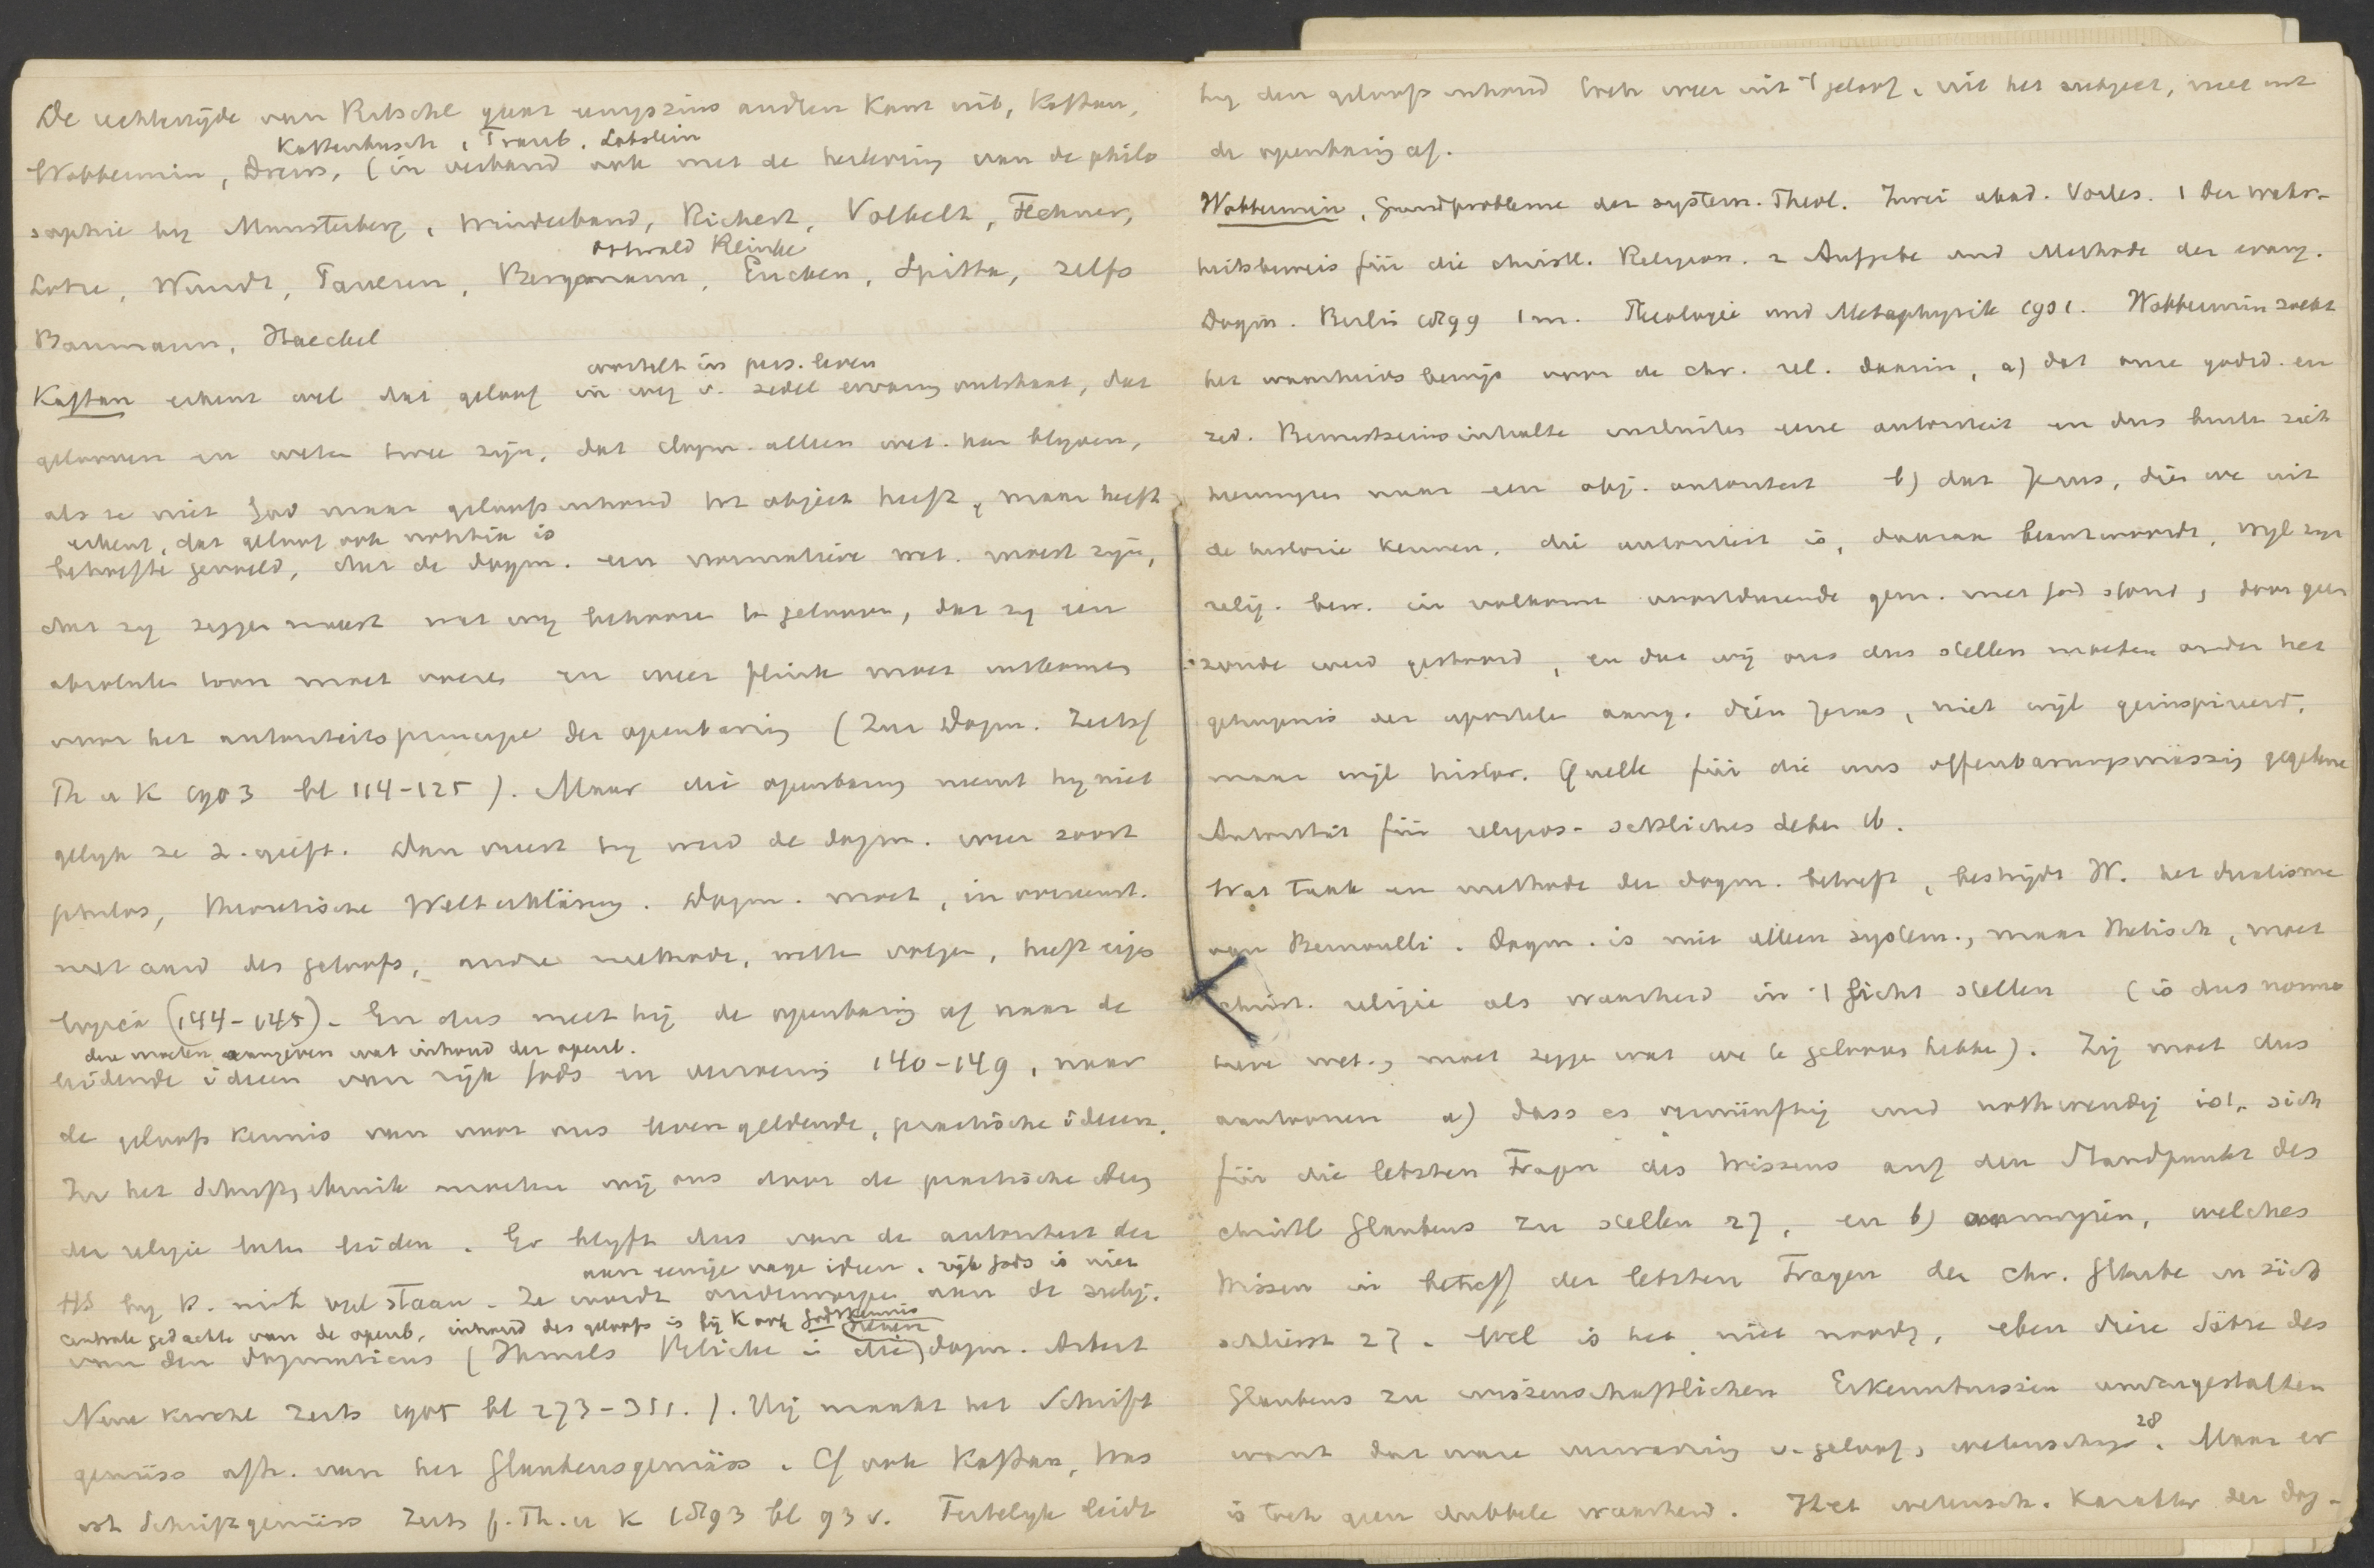 De rechterzijde van Ritschl gaat enigszins andren Kant uit, Kaftan,
Kattenbusch, Traub, Lobstein
Wobbermin, Drews, (in verband ook met de herleving van de philo
sophie by Munsterberg, Windelband, Richert, Volkelt, Fechner,
Ostwald Reinke
Lotze, Wundt, Paulsen, Bergmann, Eucken, Spitta, zelfs
Baumann, Haeckel
wortelt in pers. leven
Kaftan erkent wel dat geloof in weg v. zedel ervaring ontstaat, dat
gelooven en weten twee zijn, dat dogm. alleen wet. kan blyven,
als ze niet God maar geloofsinhoud tot object heeft, maar heeft
erkent, dat geloof ook notitia is
behoefte gevoeld, dat de dogm. een normatieve wet. moest zijn,
dat zy zeggen moest wat wy behooren te gelooven, dat zy een
absoluten toon moet voeren en weer flink moet uitkomen
voor het autoriteitsprincipe der openbaring (Zur Dogm. Zeits f
Th u K 1903 bl 114-125). Maar die openbaring neemt hy niet
gelyk ze z. geeft. Dan vreest hy werd de dogm. weer soort
philos, theoretische Welterklärung. Dogm. moet, in overeenst.
met aard des geloofs, andre methode, wetten volgen, heeft eigen
logica (144-145). En dus meet hij de openbaring af naar de
deze moeten aangeven wat inhoud der openb.
leidende ideeen van rijk Gods en verzoening 140-149, naar
de geloofs kennis van voor ons leven geldende, practische ideeen.
In het Schriftgebruik moeten wij ons door de practische idee
der religie laten leiden. Er blyft dus van de autoriteit der
aan eenige vage ideen. rijk Gods is niet
HS by K. niet veel staan. Ze wordt onderworpen aan de subj.
centrale gedachte van de openb, inhoud des geloofs is bij K ook Godskennis
van den dogmaticus (Ihmels Blicke i die dogm. Arbeit
Neue Kirchl Zeits 1905 bl 273-311.). Hij maakt het Schrift
gemäss afh. van het Glaubensgemäss. Cf ook Kaftan, Was
ist Schriftgemäss Zeits f. Th. u K 1893 bl 93 v. Feitelyk leidt
hy den geloofs inhoud toch weer uit 't geloof, uit het subject, niet uit
de openbaring af.
Wobbermin, Grundprobleme der system. Theol. Zwei akad. Vorles. 1 Der Wahr-
heitsbeweis für die christl. Religion. 2 Aufgabe und Methode der evang.
Dogm. Berlin 1899 1 m. Theologie und Metaphysik 1901. Wobbermin zoekt
het waarheids bewijs voor de chr. rel. daarin, a) dat onze godsd. en
zed. Bewustseinsinhalte insluiten eene autoriteit en dus buiten zich
heenwyzen naar een obj. autoriteit b) dat Jezus, dien we uit
de historie kennen, die autoriteit is, daaraan beantwoordt, wyl zyn
relig. bew. in volkomen voortdurende gem. met God stond, door geen
zonde werd gestoord, en dat wij ons dus stellen moeten onder het
getuigenis der apostelen aang. dien Jezus, niet wijl geinspireerd,
maar wijl histor. Quelle für die uns offenbarungsmässig gegebene
Autorität für religios-sittliches Leben ib.
Wat taak en methode der dogm. betreft, bestrijdt W. het dualisme
van Bernoulli. Dogm. is niet alleen system., maar thetisch, moet
christ. religie als waarheid in 't licht stellen (is dus norma
tieve wet., moet zeggen wat we te gelooven hebben). Zij moet dus
aantoonen a) dass es vernünftig und nothwendig ist, sich
für die letzten Fragen des Wissens auf den Standpunkt des
christl Glaubens zu stellen 27, en b) aanwijzen, welches
Wissen in betreff der letzten Fragen der chr. Glaube in sich
schliesst 27. Wel is het niet noodig, eben diese Sätze des
Glaubens zu wissenschaftlichen Erkenntnissen umzugestalten
want dat ware vermenging v. geloof, wetenschap 28. Maar er
is toch geen dubbele waarheid. Het wetensch. karakter der dog-